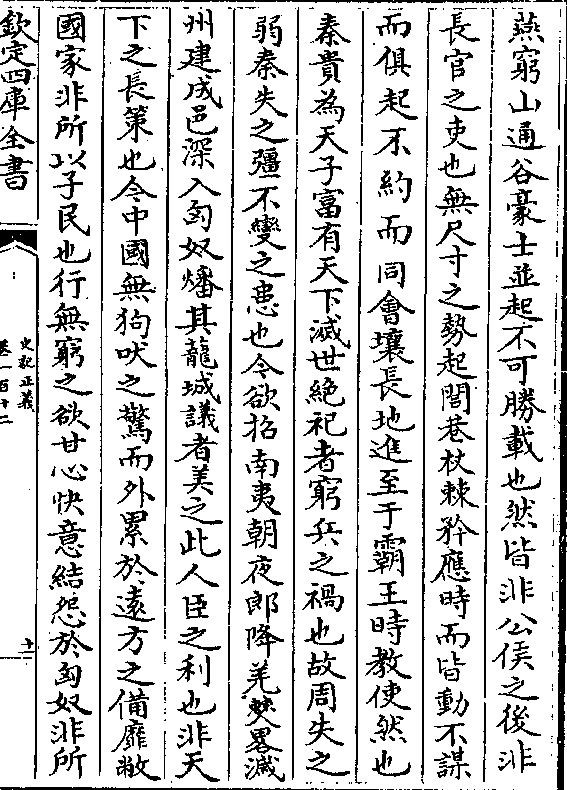 燕窮山通谷豪士並起不可勝載也然皆非公侯之後非
長官之吏也無尺寸之勢起閭巷杖棘矜應時而皆動不謀
而俱起不約而同會壤長地進至于霸王時教使然也
秦貴為天子富有天下滅世絶祀者窮兵之禍也故周失之
弱秦失之彊不變之患也今欲招南夷朝夜郎降羌僰畧濊
州建成邑深入匈奴燔其龍城議者美之此人臣之利也非天
下之長策也今中國無狗吠之驚而外累於遠方之備靡敝
國家非所以子民也行無窮之欲甘心快意結怨於匈奴非所
欽定四庫全書
史記正義
卷一百十二
十